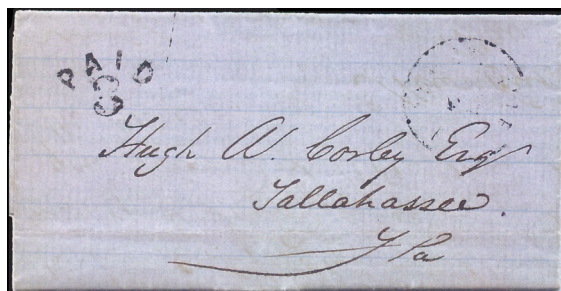 PAID
3
Hugh A. Corley Esq
Tallahassee.
Fla